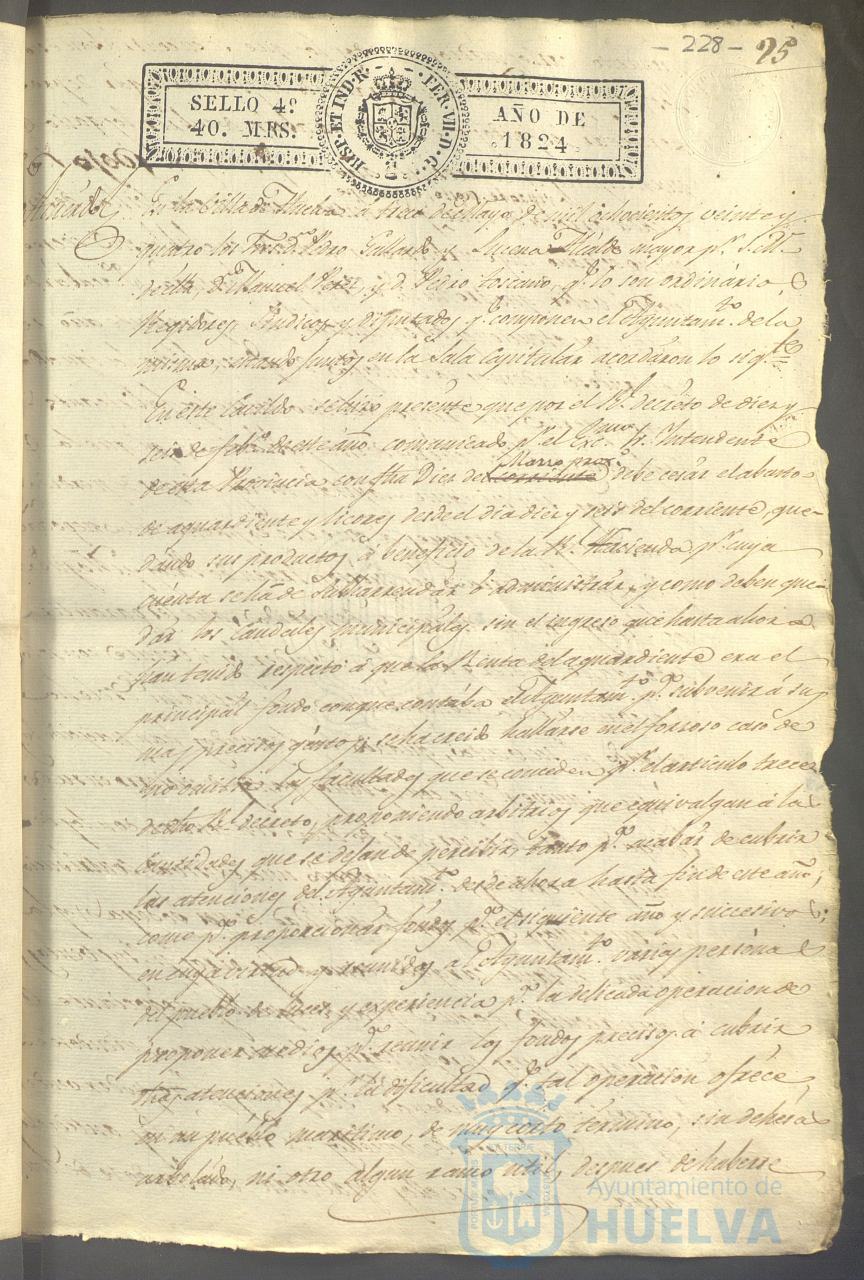 - 228 - 95
SELLO 4º
40. MRS.
HISP. ET IND. R. FER. VII. D. G.
AÑO DE
1824
En la Villa de Huelva a trece de Mayo de mil ochocientos veinte y
quatro los Sres. Dn. Pedro Gallardo y Lucena Alcalde mayor pr. S. M.
de ella, Dn. Manuel Perez, y D. Pedro Toscano, qe. lo son ordinarios
Regidores Sindicos y Diputados, qe. componen el Ayuntamto. de la
misma, estando juntos en la Sala Capitular acordaron lo sigte.
En este Cavildo se hizo presente que por el Rl. Decreto de diez y
seis de febo. de este año comunicado pr. el Sr. Intendente
de esta Provincia con fha Diez de corriente Marzo prox. debe cesar el abasto
de aguardiente y licores desde el dia diez y seis del corriente, que-
dando sus productos á beneficio de la Rl. Hacienda pr. cuya
cuenta se há de subarrendar ó administrar, y como deben que-
dar los caudales municipales sin el ingreso que hasta ahora
han tenido respecto á que la Renta del aguardiente era el
principal fondo con que contába el Ayuntamto. pa. subvenir á sus
mas precisos gastos, se ha creido hallarse en el forzoso caso de
las facultades que se conceden pr. el articulo trece
de dho Rl. decreto, proponiendo arbitrios que equivalgan á las
cantidades que se dejan de percibir, tanto pa. acabar de cubrir
las atenciones del Ayuntamto. desde ahora hasta fin de este año,
como pa. proporcionar fondos pa. el siguiente año y successivos;
en cuya virtud y reunidos a el Ayuntamto. varias personas
del pueblo de luces y experiencia pa. la delicada operacion de
proponer medios pa. reunir los fondos precisos á cubrir
atenciones pr. la dificultad qe. tal operacion ofrece
en un pueblo maritimo, de muy corto termino, sin dehesas
arbolado, ni otro algun ramo util, despues de haberse
Ayuntamiento de
HUELVA